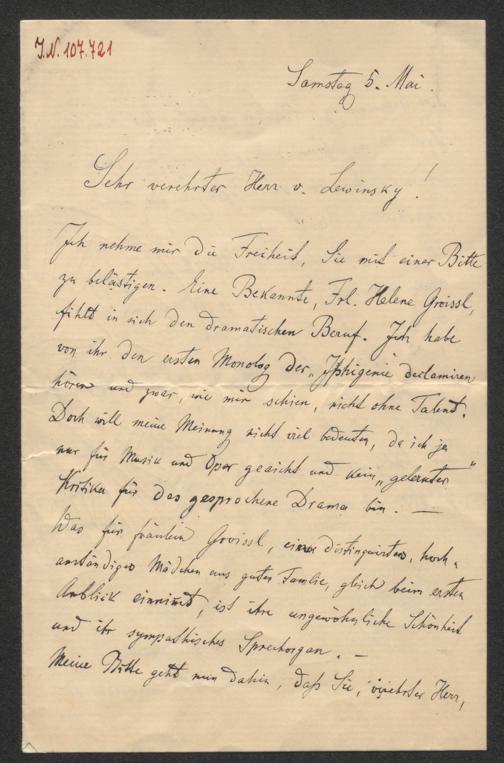 J.N. 107.721
Samstag 5. Mai.
Sehr verehrter Herr v. Lewinsky!
Ich nehme mir die Freiheit, Sie mit einer Bitte
zu belästigen. Eine Bekannte, Frl. Helene Groissl,
fühlt in sich den dramatischen Beruf. Ich habe
von ihr den ersten Monolog der „Iphigenie" declamiren
hören und zwar, wie mir schien, nicht ohne Talent.
Doch will meine Meinung nicht viel bedeuten, da ich ja
nur für Musik und Oper geaicht und kein „gelernter"
Kritiker für das gesprochene Drama bin. —
Was für Fräulein Groissl, ein distinguirtes, hoch-
anständiges Mädchen aus guter Familie, gleich beim ersten
Anblick einnimmt, ist ihre ungewöhnliche Schönheit
und ihr sympathisches Sprechorgan. —
Meine Bitte geht nun dahin, daß Sie, verehrter Herr,